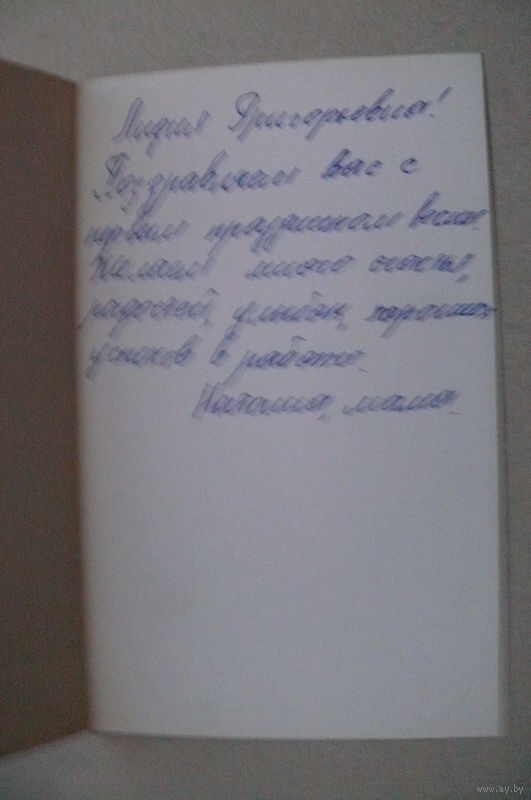 Лидия Григорьевна!
Поздравляем вас с
первым праздником весны.
Желаем много счастья,
радостей, улыбок, хороших
успехов в работе.
Наташа, мама.
www.ay.by